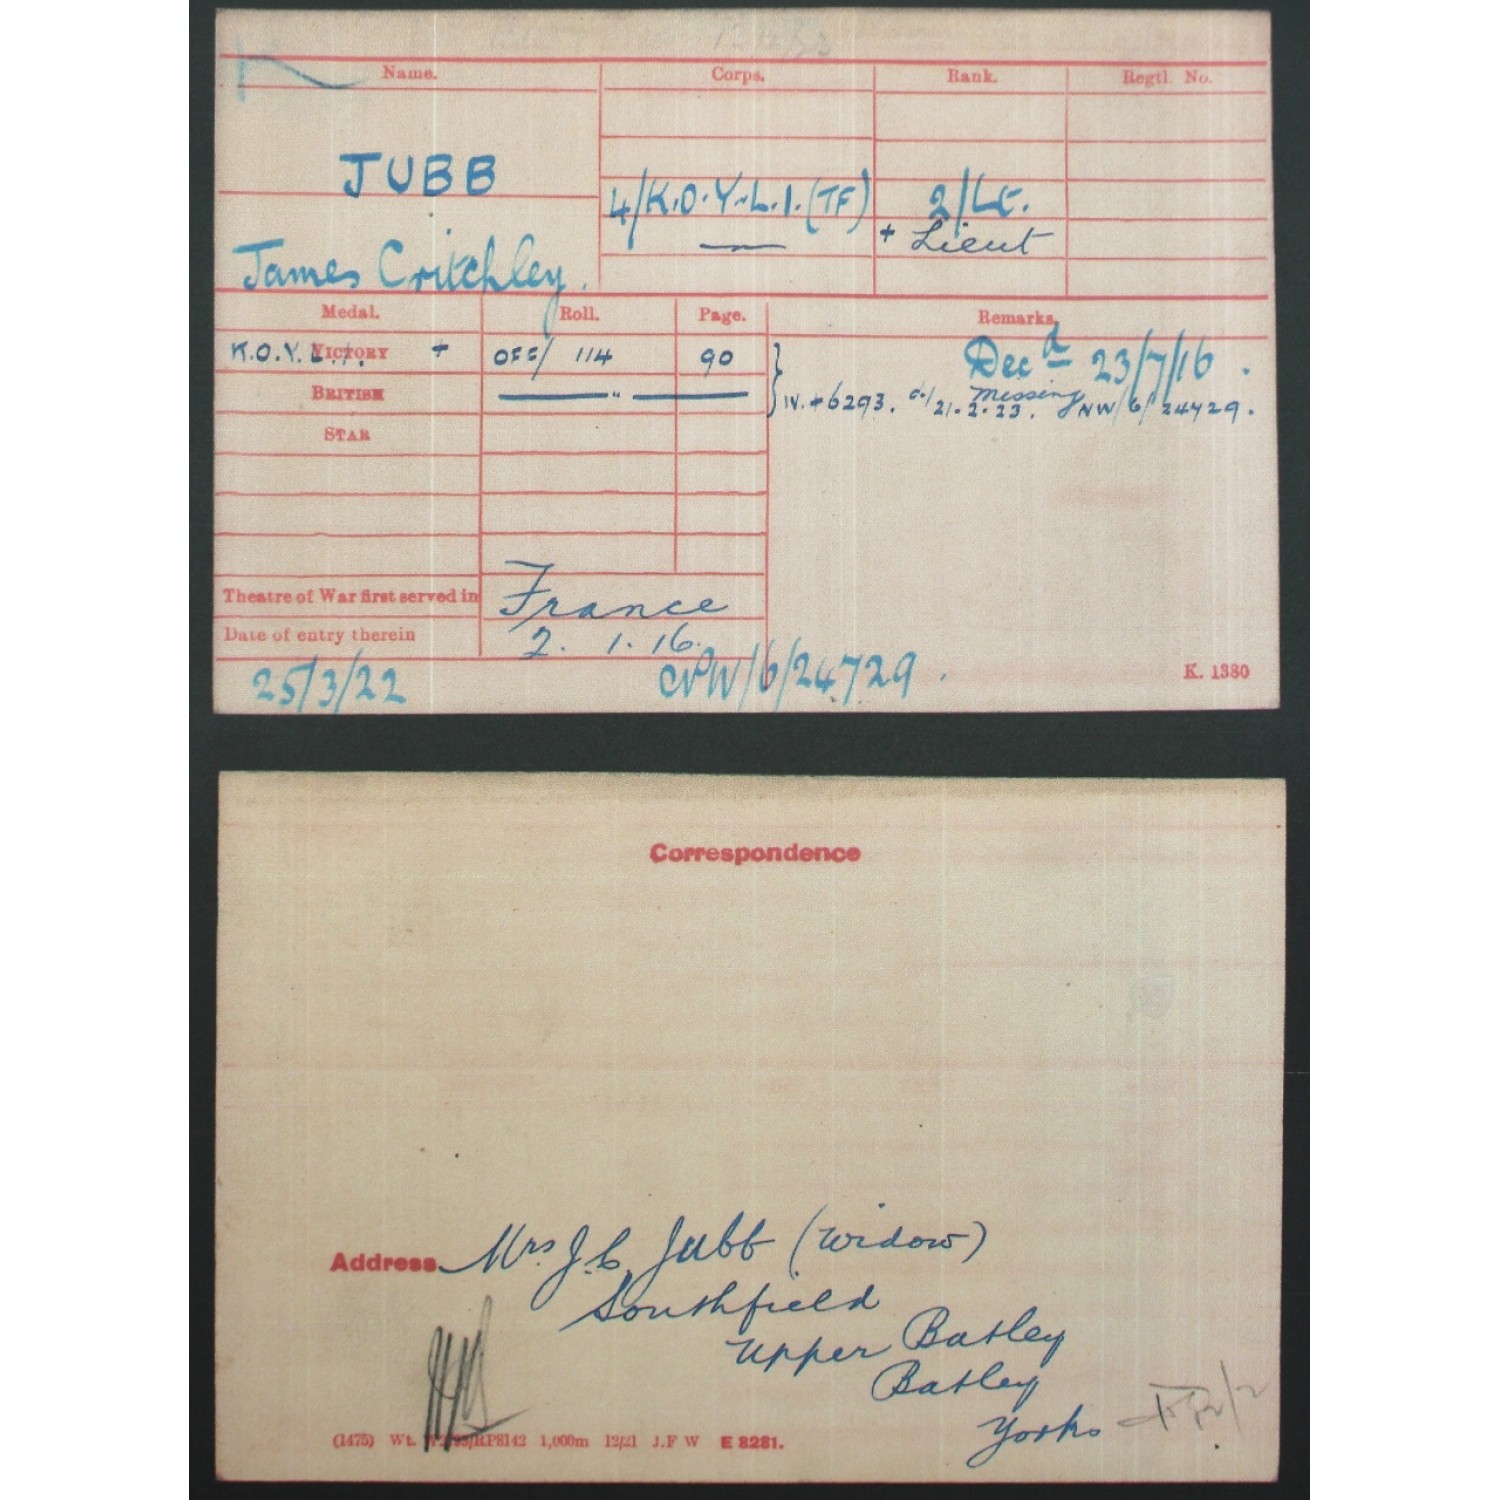 Name. Corps. Rank. Regtl. No.
JUBB
4/K.O.Y.L.I. (TF) 2/Lt.
+ Lieut
James Critchley.
Medal. Roll. Page. Remarks.
K.O.Y.L.I. VICTORY + OFF/ 114 90 Decd 23/7/16.
Missing
BRITISH — " — IV. +6293. d/21.2.23. NW/6/24729.
STAR
Theatre of War first served in France
Date of entry therein 2. 1. 16.
25/3/22 NW/6/24729. K. 1380
Correspondence
Address Mrs J.C. Jubb (Widow)
Southfield
Upper Batley
Batley
Yorks
(1475) Wt. 1,000m 12/21 J.F W E 8281.